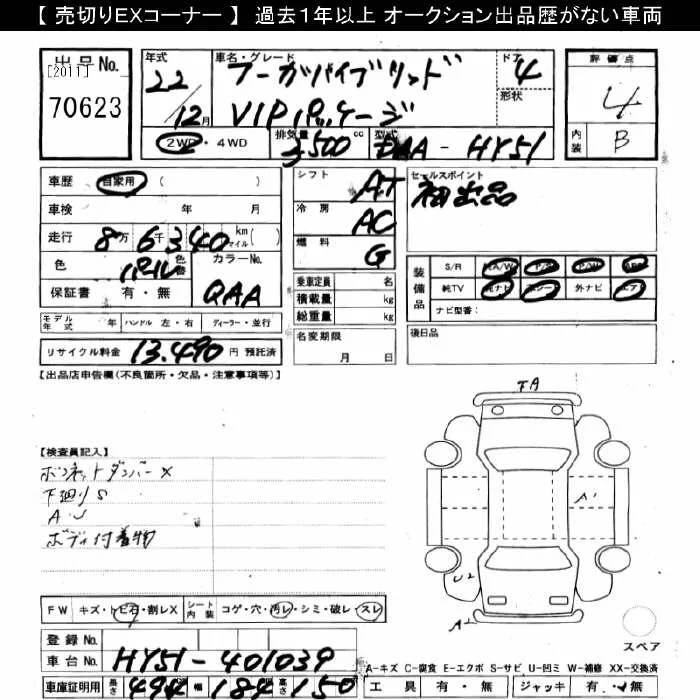 【 売切りEXコーナー 】 過去1年以上 オークション出品歴がない車両
出品No. [2011] 70623
年式 22/12月
車名・グレード フーガハイブリッド VIPパッケージ
ドア 4
形状
評価点 4
内装 B
2WD・4WD
排気量 3500 cc
型式 DAA - HY51
車歴 自家用 ( )
車検 年 月
走行 8万6千340 km マイル ( )
色 パール 色替
カラーNo. QAA
保証書 有・無
シフト AT
冷房 AC
燃料 G
乗車定員 名
積載量 kg
総重量 kg
セールスポイント
初出品
装備品 S/R A/W P/S P/W
純TV 純ナビ 革シート 外ナビ エアB
ナビ型番:
モデル年式 年 ハンドル 左・右 ディーラー・並行
リサイクル料金 13,490 円 預託済
名変期限 月 日
後日品
【出品店申告欄(不良箇所・欠品・注意事項等)】
【検査員記入】
ボンネットダンパーX
下廻りS
A・U
ボディ付着物
FA
A1
U2
A2
FW キズ・トビ石・割レX
シート内装 コゲ・穴・汚レ・シミ・破レ・スレ
スペア
登録No.
車台No. HY51-401039
A-キズ C-腐食 E-エクボ S-サビ U-凹ミ W-補修 XX-交換済
車庫証明用 長さ 494 幅 184 高さ 150
工具 有・無 ジャッキ 有・無